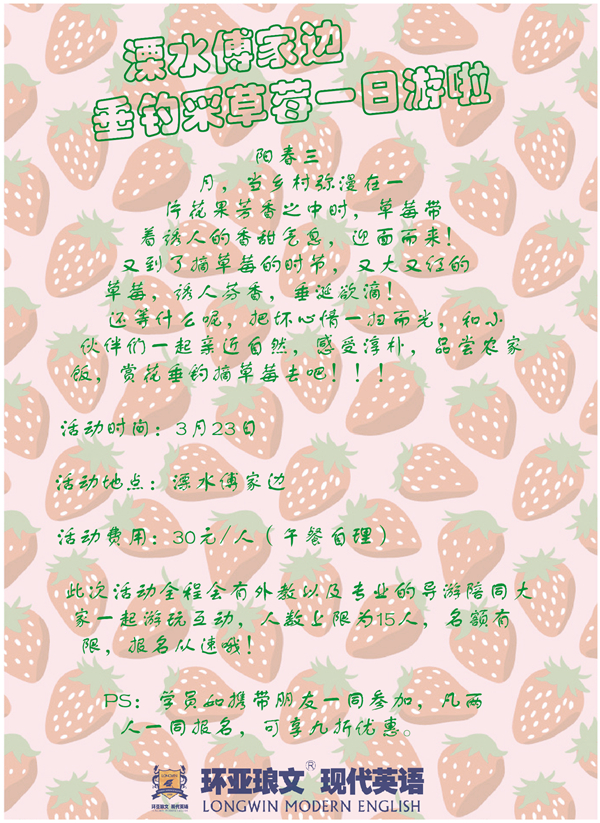 溧水傅家边
垂钓采草莓一日游啦
阳春三
月，当乡村弥漫在一
片花果芳香之中时，草莓带
着诱人的香甜气息，迎面而来！
又到了摘草莓的时节，又大又红的
草莓，诱人芬香，垂涎欲滴！
还等什么呢，把坏心情一扫而光，和小
伙伴们一起亲近自然，感受淳朴，品尝农家
饭，赏花垂钓摘草莓去吧！！！
活动时间：3月23日
活动地点：溧水傅家边
活动费用：30元/人（午餐自理）
此次活动全程会有外教以及专业的导游陪同大
家一起游玩互动，人数上限为15人，名额有
限，报名从速哦！
PS：学员如携带朋友一同参加，凡两
人一同报名，可享九折优惠。
环亚琅文® 现代英语
LONGWIN MODERN ENGLISH
环亚琅文 现代英语